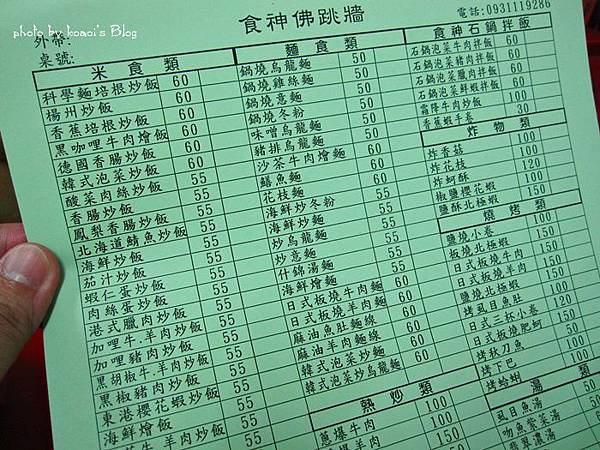 photo by koaoi's Blog
食神佛跳牆
電話:0931119286
外帶:
桌號:
米食類
科學麵培根炒飯 60
楊州炒飯 60
香蕉培根炒飯 60
黑咖哩牛肉燴飯 60
德國香腸炒飯 60
韓式泡菜炒飯 60
酸菜肉絲炒飯 55
香腸炒飯 55
鳳梨香腸炒飯 55
北海道鯖魚炒飯 55
海鮮炒飯 55
茄汁炒飯 55
蝦仁蛋炒飯 55
肉絲蛋炒飯 55
港式臘肉炒飯 55
加哩牛.羊肉炒飯 55
加哩豬肉炒飯 55
黑胡椒牛.羊肉炒飯 55
黑椒豬肉炒飯 55
東港櫻花蝦炒飯 55
海鮮燴飯 55
牛.羊肉炒飯 55
麵食類
鍋燒烏龍麵 50
鍋燒雞絲麵 50
鍋燒意麵 50
鍋燒冬粉 50
味噌烏龍麵
豬排烏龍麵
沙茶牛肉燴麵
鱔魚麵
花枝麵
海鮮炒冬粉
海鮮炒麵
炒烏龍麵
炒意麵
什錦湯麵
海鮮燴麵
日式板燒牛肉麵
日式板燒羊肉麵
麻油魚肚麵線
麻油羊肉麵線
韓式泡菜炒麵
韓式泡菜炒烏龍麵
熱炒類
蔥爆牛肉 100
羊肉 100
食神石鍋拌飯
石鍋泡菜牛肉拌飯
石鍋泡菜豬肉拌飯
石鍋泡菜臘肉拌飯
石鍋泡菜鮮蝦拌飯
霜降牛肉炒飯
香蕉蝦手卷 30
炸物類
炸香菇 100
炸花枝 100
炸蚵酥 100
椒鹽櫻花蝦 100
鹽酥北極蝦 150
燒烤類
鹽燒小卷 100
板燒北極蝦
日式板燒牛肉
日式板燒羊肉
鹽燒北極蝦
烤虱目魚肚
日式三杯小卷
日式板燒肥蚵
烤秋刀魚
烤下巴
烤蛤蜊
湯類
虱目魚湯 50
吻魚紫菜湯
翡翠濃湯